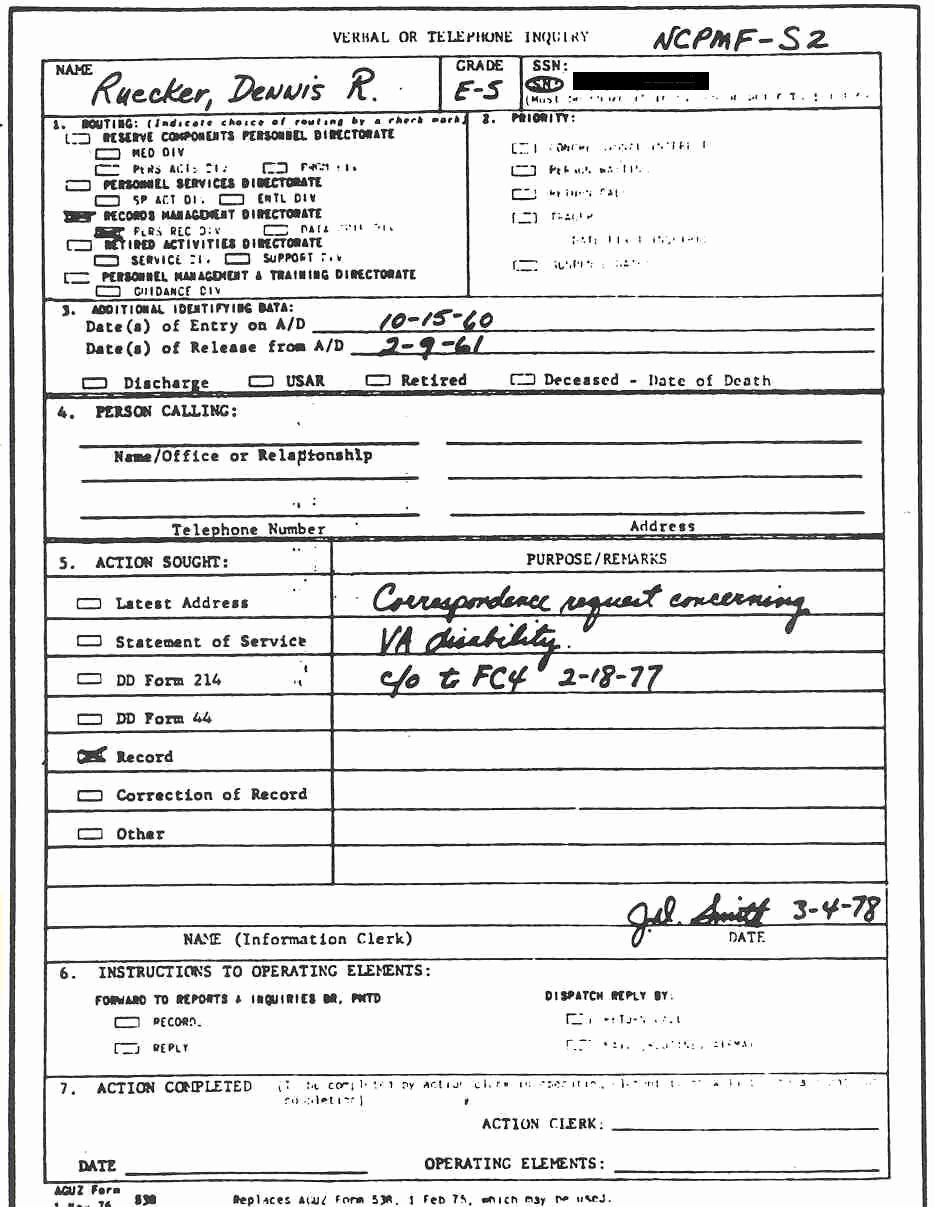 VERBAL OR TELEPHONE INQUIRY NCPMF-S2
NAME GRADE SSN:
Ruecker, Dennis R. E-5 SN
1. ROUTING: (Indicate choice of routing by a check mark) 2. PRIORITY:
RESERVE COMPONENTS PERSONNEL DIRECTORATE
MED DIV
PERS ACTS DIV
PERSONNEL SERVICES DIRECTORATE
SP ACT DIV ENTL DIV
RECORDS MANAGEMENT DIRECTORATE
PERS REC DIV DATA DIV
RETIRED ACTIVITIES DIRECTORATE
SERVICE DIV SUPPORT DIV
PERSONNEL MANAGEMENT & TRAINING DIRECTORATE
GUIDANCE DIV
PERSON WAITING
RETURN CALL
TRACER
SUSPENSE DATE
3. ADDITIONAL IDENTIFYING DATA:
Date(s) of Entry on A/D 10-15-60
Date(s) of Release from A/D 2-9-61
Discharge USAR Retired Deceased - Date of Death
4. PERSON CALLING:
Name/Office or Relationship
Telephone Number Address
5. ACTION SOUGHT: PURPOSE/REMARKS
Latest Address Correspondence request concerning
Statement of Service VA disability.
DD Form 214 c/o to FC4 2-18-77
DD Form 44
Record
Correction of Record
Other
Smith 3-4-78
NAME (Information Clerk) DATE
6. INSTRUCTIONS TO OPERATING ELEMENTS:
FORWARD TO REPORTS & INQUIRIES BR, PMTD DISPATCH REPLY BY:
RECORD. RETURN CALL
REPLY
7. ACTION COMPLETED (To be completed by action clerk
completion)
ACTION CLERK:
DATE OPERATING ELEMENTS:
AGUZ Form 538 Replaces AGUZ Form 538, 1 Feb 75, which may be used.
1 Nov 76